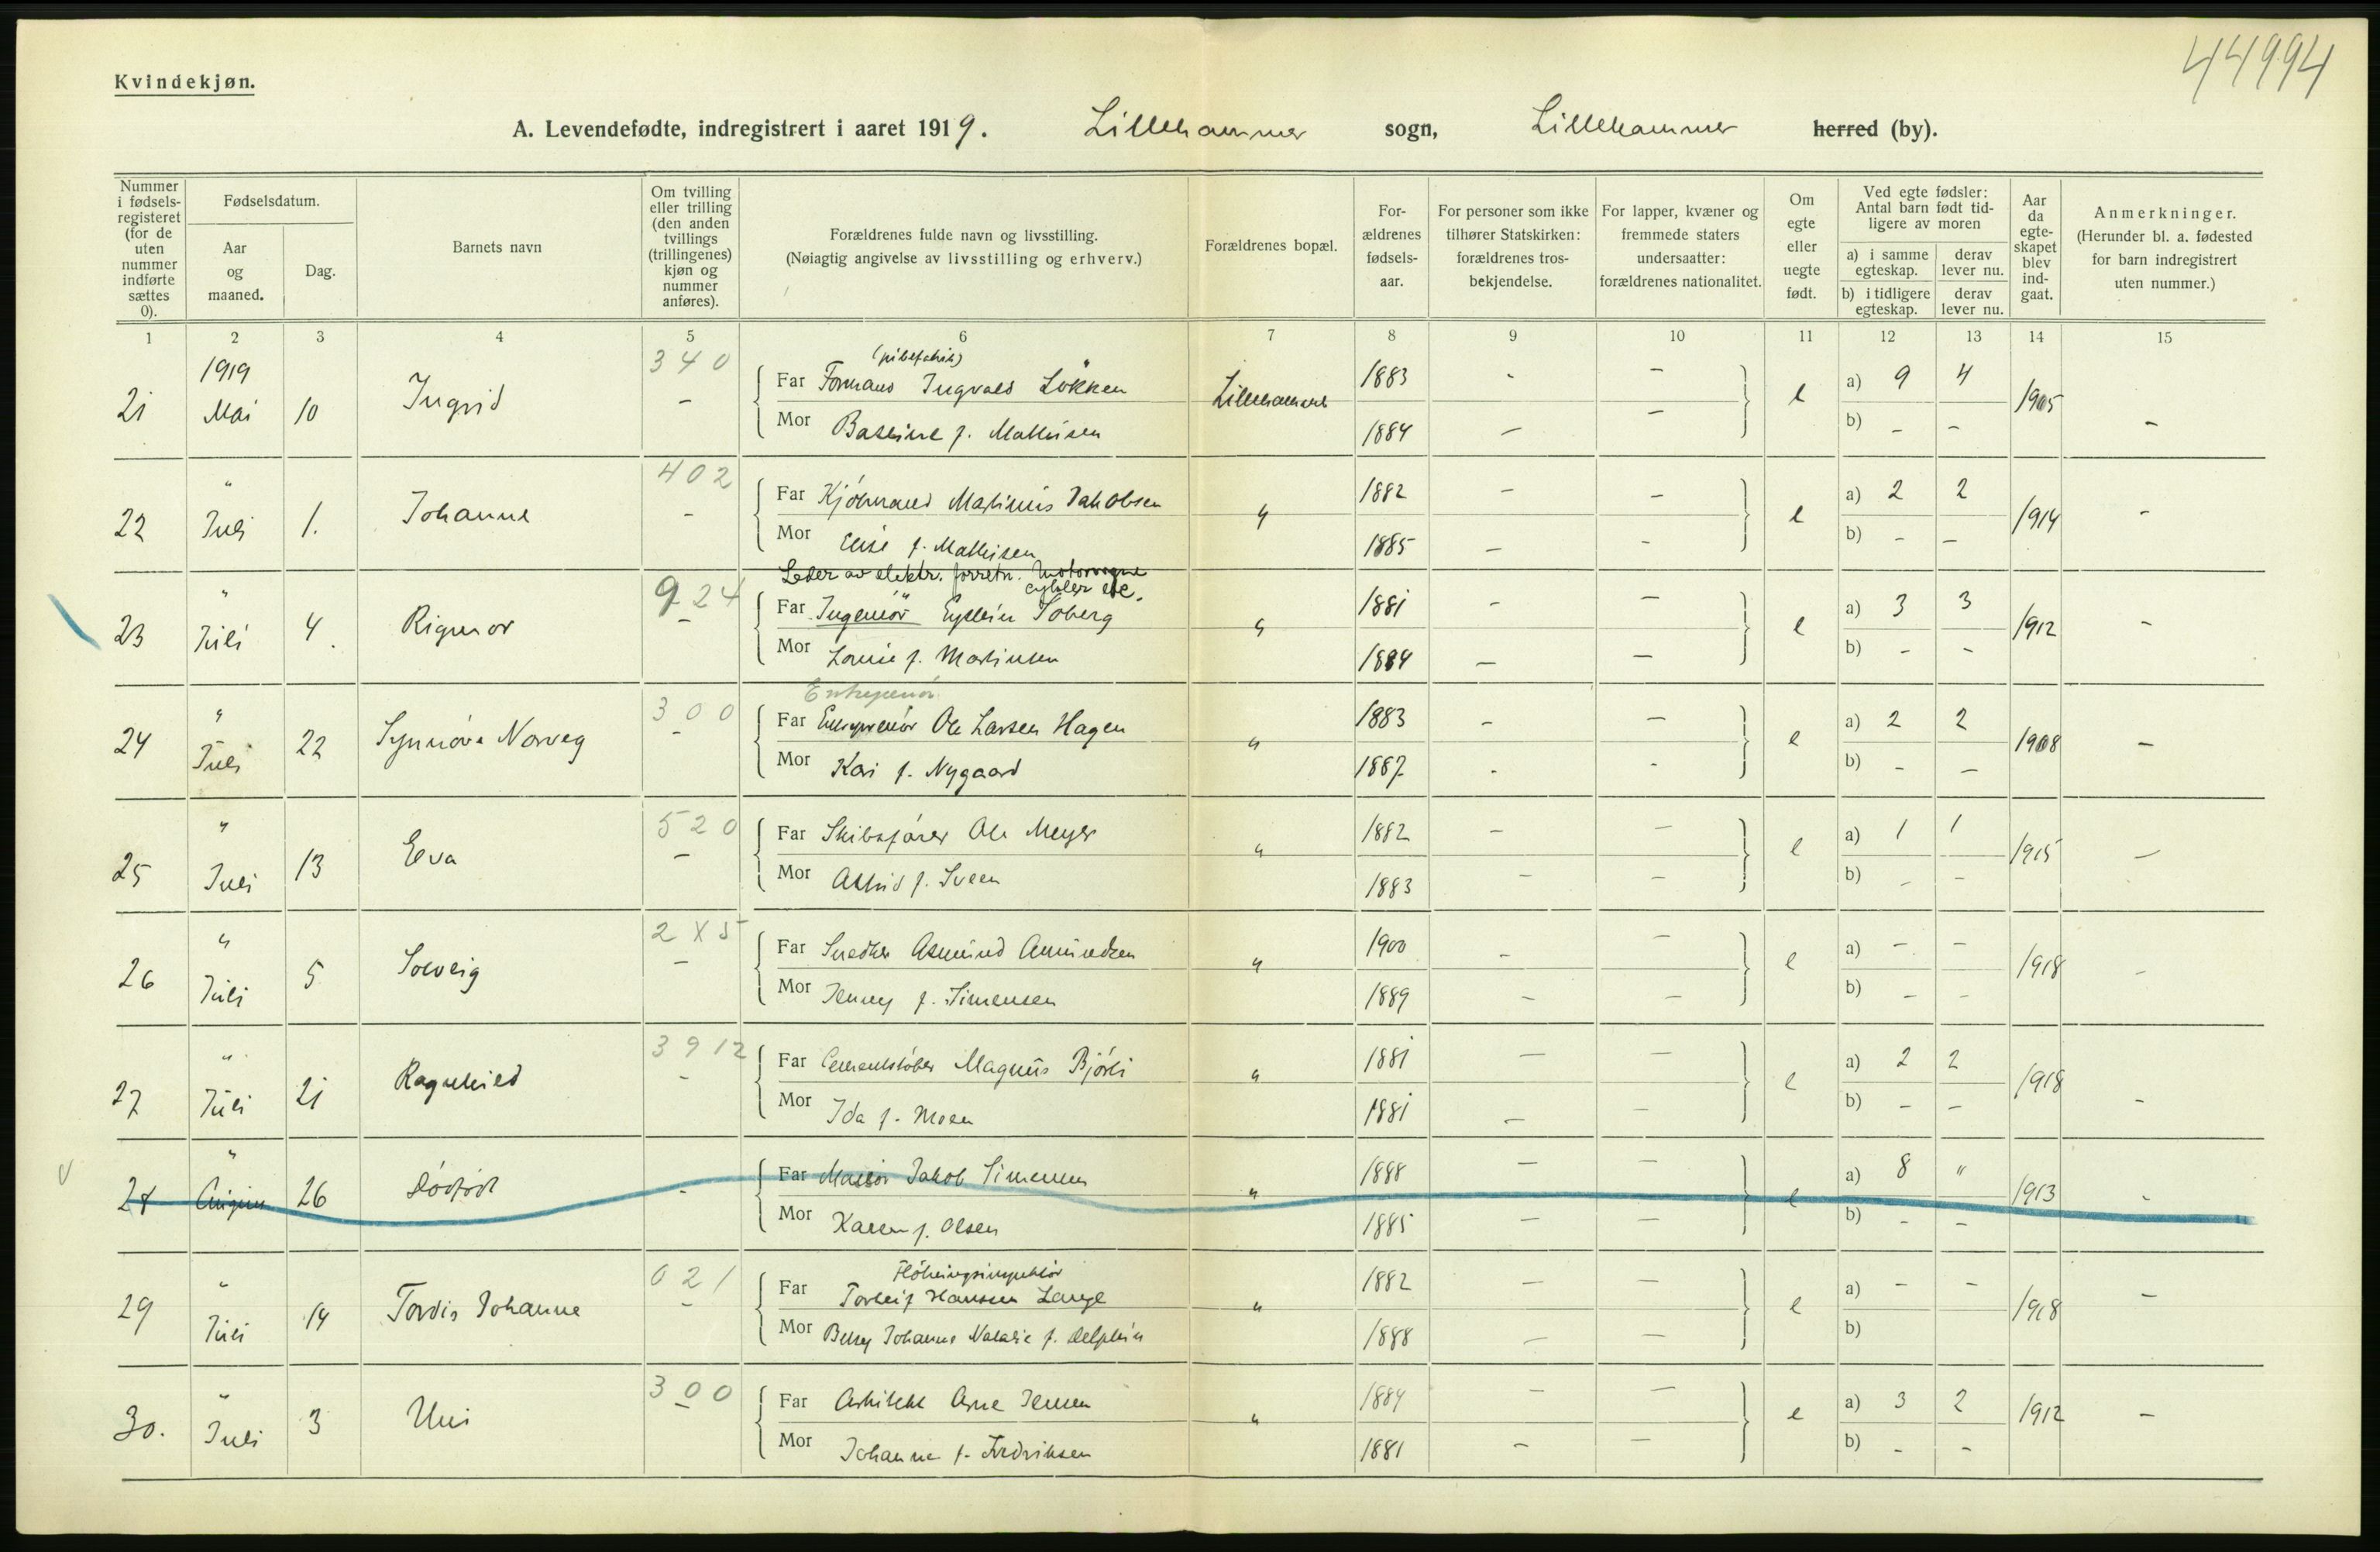 44994
Kvindekjøn.
A. Levendefødte, indregistrert i aaret 1919. Lillehammer sogn, Lillehammer herred (by).
Nummer i fødsels-registeret (for de uten nummer indførte sættes 0).
Fødselsdatum.
Aar og maaned.
Dag.
Barnets navn
Om tvilling eller trilling (den anden tvillings (trillingenes) kjøn og nummer anføres).
Forældrenes fulde navn og livsstilling.
(Nøiagtig angivelse av livsstilling og erhverv.)
Forældrenes bopæl.
For-ældrenes fødsels-aar.
For personer som ikke tilhører Statskirken: forældrenes tros-bekjendelse.
For lapper, kvæner og fremmede staters undersaatter: forældrenes nationalitet.
Om egte eller uegte født.
Ved egte fødsler: Antal barn født tid-ligere av moren
a) i samme egteskap.
derav lever nu.
b) i tidligere egteskap.
derav lever nu.
Aar da egte-skapet blev ind-gaat.
Anmerkninger.
(Herunder bl. a. fødested for barn indregistrert uten nummer.)
1 2 3 4 5 6 7 8 9 10 11 12 13 14 15
1919 340 (pibefabrik)
21 Mai 10 Ingrid - Far Formand Ingvald Løkken Lillehammer 1883 - - e a) 9 4 1905 -
Mor Bathine f. Mathisen 1884 - - b) - -
" 402
22 Juli 1. Johanne - Far Kjøbmand Martinius Jakobsen " 1882 - - e a) 2 2 1914 -
Mor Elise f. Mathisen 1885 - - b) - -
Leder av elektr. forretn. Motorvogne
cykler etc.
" 924
23 Juli 4. Rigmor - Far Ingeniør Eystein Soberg " 1881 - - e a) 3 3 1912 -
Mor Louise f. Martinsen 1884 - - b) - -
Entreprenør
" 300
24 Juli 22 Synnøve Norveg - Far Entreprenør Ole Larsen Hagen " 1883 - - e a) 2 2 1908 -
Mor Kari f. Nygaard 1887 - - b) - -
" 520
25 Juli 13 Eva - Far Skibsfører Ole Meyer " 1882 - - e a) 1 1 1915 -
Mor Astrid f. Sveen 1883 - - b) - -
" 2X5
26 Juli 5 Solveig - Far Snedker Asmund Amundsen " 1900 - - e a) - - 1918 -
Mor Jenny f. Simensen 1889 - - b) - -
" 3912
27 Juli 21 Ragnhild - Far Cementstøber Magnus Bjørli " 1881 - - e a) 2 2 1918 -
Mor Ida f. Moen 1881 - - b) - -
"
28 August 26 Dødfødt - Far Jakob Simensen " 1888 - - e a) 8 " 1913 -
Mor Karen f. Olsen 1885 - - b) - -
" 021 Fløtningsinspektør
29 Juli 14 Tordis Johanne - Far Torleif Hansen Lange " 1882 - - e a) - - 1918 -
Mor Betsy Johanne Natalie f. Delphin 1888 - - b)
" 300
30. Juli 3 Uni - Far Arkitekt Arne Jensen " 1884 - - e a) 3 2 1912 -
Mor Johanne f. Fredriksen 1881 - - b) - -